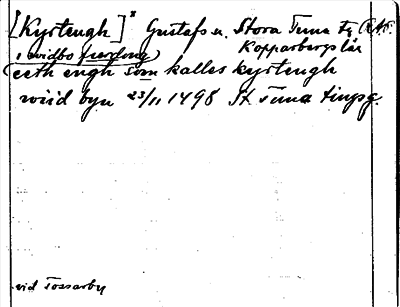 [Kyrtengh]* Gustafs n. Stora Tuna
Kopparbergs län
(i widbo fierding)
eeth engh som kalles kyrtengh
wiid byn 23/11 1498 St. Tuna tingsp.
vid Tossarby